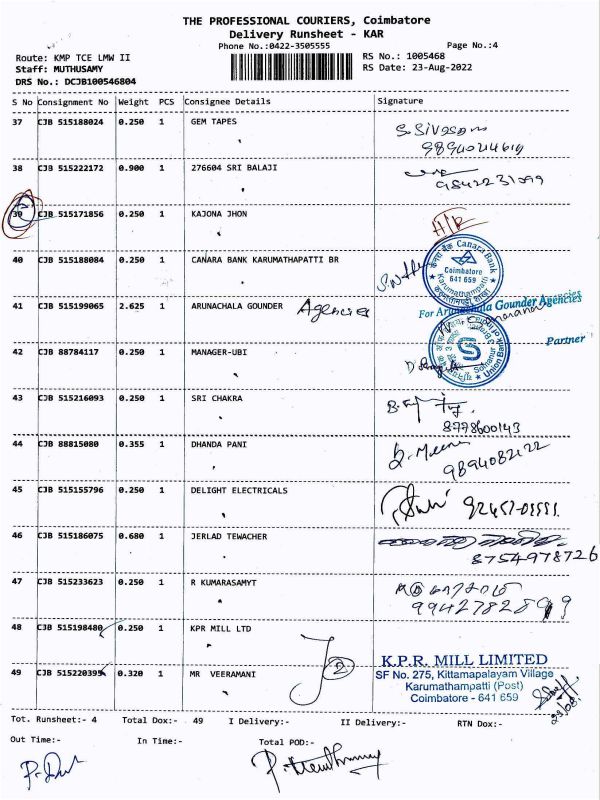 THE PROFESSIONAL COURIERS, Coimbatore
Delivery Runsheet - KAR
Phone No.:0422-3505555 Page No.:4
Route: KMP TCE LMW II RS No.: 1005468
Staff: MUTHUSAMY RS Date: 23-Aug-2022
DRS No.: DCJB100546804
S No Consignment No Weight PCS Consignee Details Signature
37 CJB 515188024 0.250 1 GEM TAPES
S. Sivasam
38 CJB 515222172 0.900 1 276604 SRI BALAJI
9842231099
39 CJB 515171856 0.250 1 KAJONA JHON
40 CJB 515188084 0.250 1 CANARA BANK KARUMATHAPATTI BR
Canara Bank
Coimbatore
641 659
Karumathampatti
41 CJB 515199065 2.625 1 ARUNACHALA GOUNDER Agencies
For Arunachala Gounder Agencies
Partner
42 CJB 88784117 0.250 1 MANAGER-UBI
Union Bank
43 CJB 515216093 0.250 1 SRI CHAKRA
8778600143
44 CJB 88815080 0.355 1 DHANDA PANI
Meena
9894082122
45 CJB 515155796 0.250 1 DELIGHT ELECTRICALS
46 CJB 515186075 0.680 1 JERLAD TEWACHER
8754978726
47 CJB 515233623 0.250 1 R KUMARASAMYT
48 CJB 515198480 0.250 1 KPR MILL LTD
2
K.P.R. MILL LIMITED
49 CJB 515220395 0.320 1 MR VEERAMANI
SF No. 275, Kittamapalayam Village
Karumathampatti (Post)
Coimbatore - 641 659
23/08
Tot. Runsheet:- 4 Total Dox:- 49 I Delivery:- II Delivery:- RTN Dox:-
Out Time:- In Time:- Total POD:-